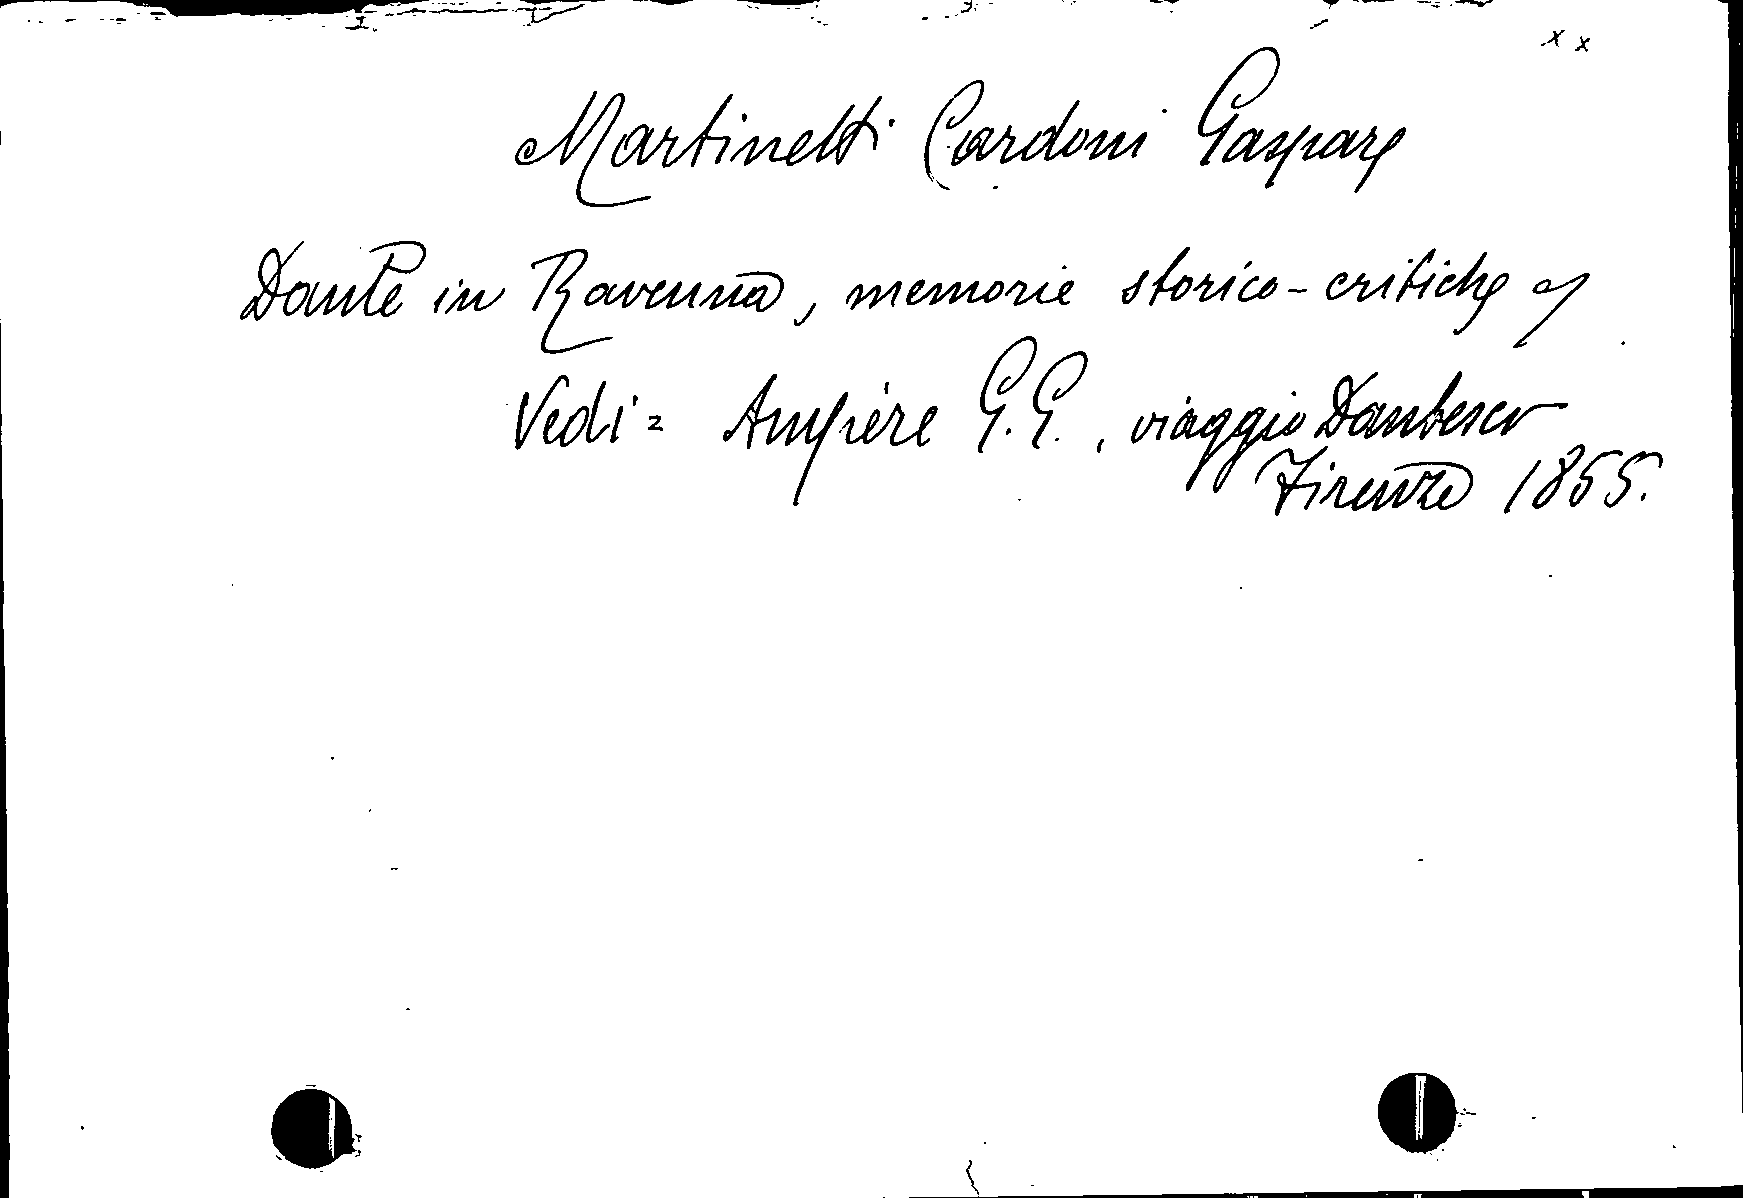 x x
Martinetti Cardoni Gaspare
Dante in Ravenna, memorie storico-critiche
Vedi = Ampère G.G., viaggio Dantesco
Firenze 1855.